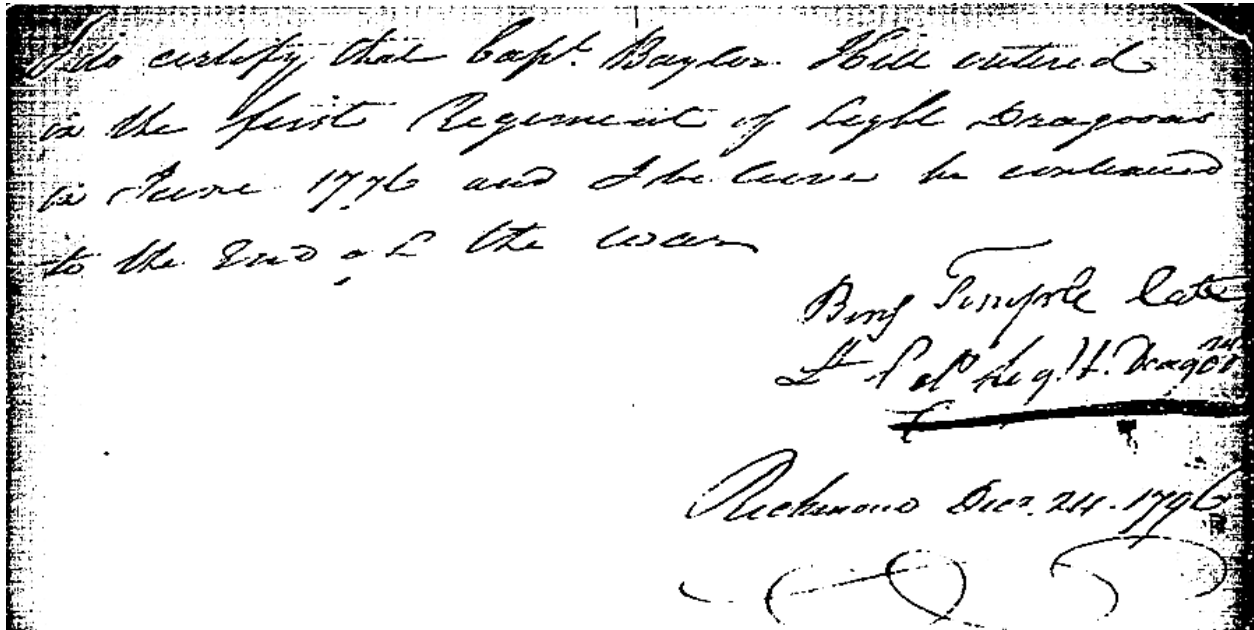 I do certify that Capt. Baylor Hill entered
in the first Regiment of Light Dragoons
in June 1776 and I believe he continued
to the End of the war
Benj Temple late
Lt Col Reg. L. Dragns
Richmond Decr. 24. 1796